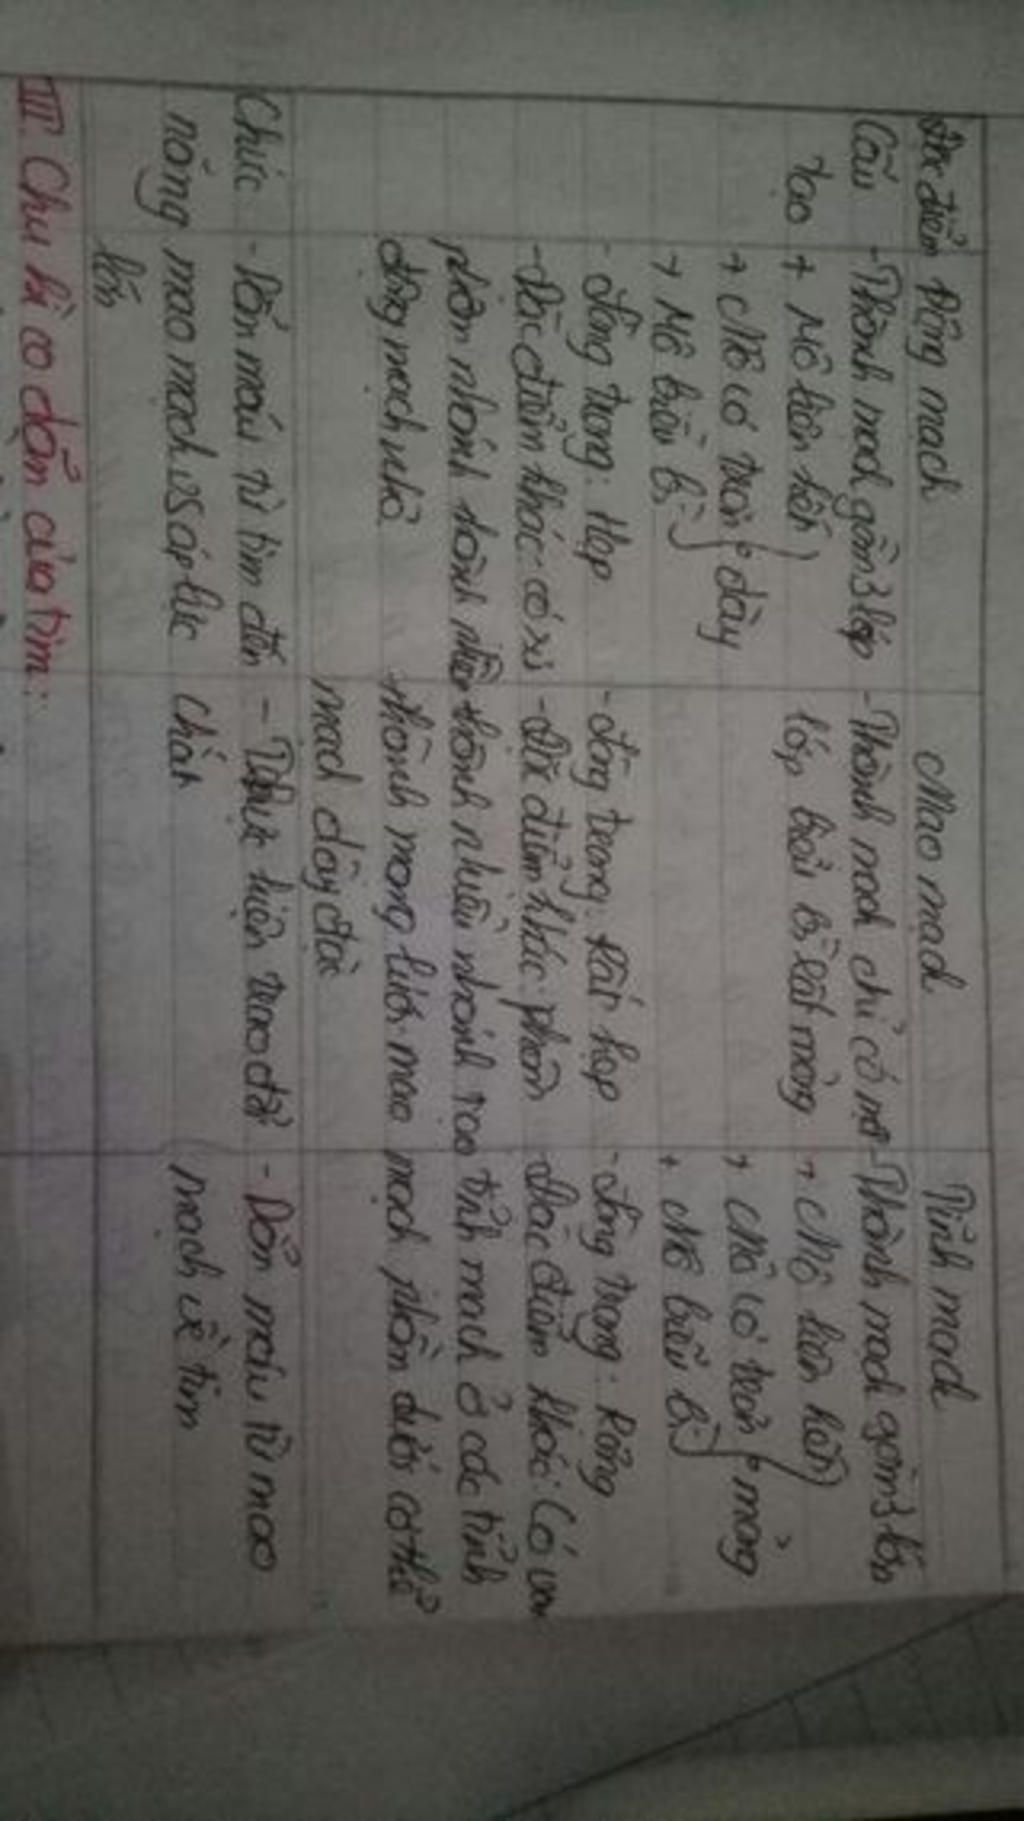 Đặc điểm Động mạch Mao mạch Tĩnh mạch
Cấu - Thành mạch gồm 3 lớp - Thành mạch chỉ có một - Thành mạch gồm 3 lớp
tạo + Mô liên kết lớp biểu bì rất mỏng + Mô liên kết
+ Mô cơ trơn dày + Mô cơ trơn mỏng
+ Mô biểu bì + Mô biểu bì
- Lòng trong: Hẹp - Lòng trong: Rất hẹp - Lòng trong: Rộng
- Đặc điểm khác: có - Đặc điểm khác: phân - Đặc điểm khác: Có van
phân nhánh thành nhiều nhánh tạo tĩnh mạch ở các tĩnh
động mạch nhỏ thành mạng lưới mao mạch phần dưới cơ thể
mạch dày đặc
Chức - Dẫn máu từ tim đến - Thực hiện trao đổi - Dẫn máu từ mao
năng mao mạch với áp lực chất mạch về tim
lớn
III. Chu kì co dãn của tim: